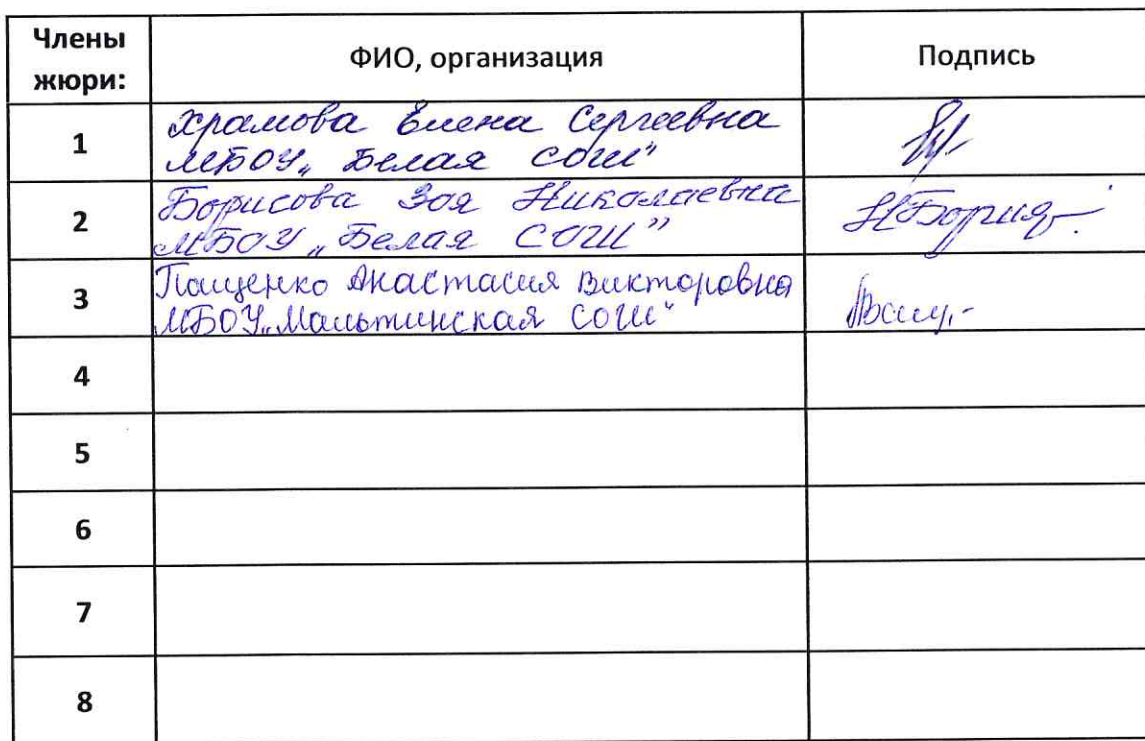 Члены жюри: ФИО, организация Подпись
1 Храмова Елена Сергеевна
МБОУ „Белая СОШ"
2 Борисова Зоя Николаевна
МБОУ „Белая СОШ"
3 Пащенко Анастасия Викторовна
МБОУ „Мальтинская СОШ"
4
5
6
7
8